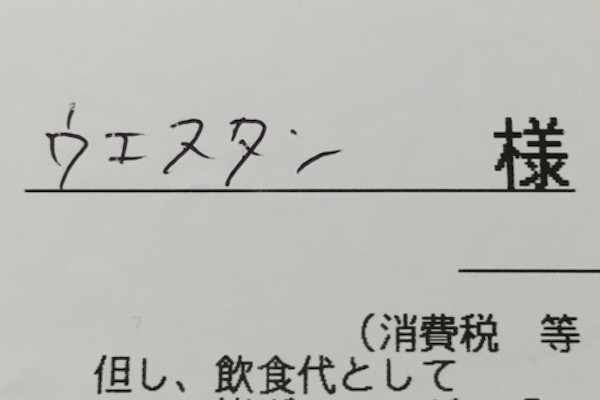 ウエスタン 様
(消費税 等
但し、飲食代として